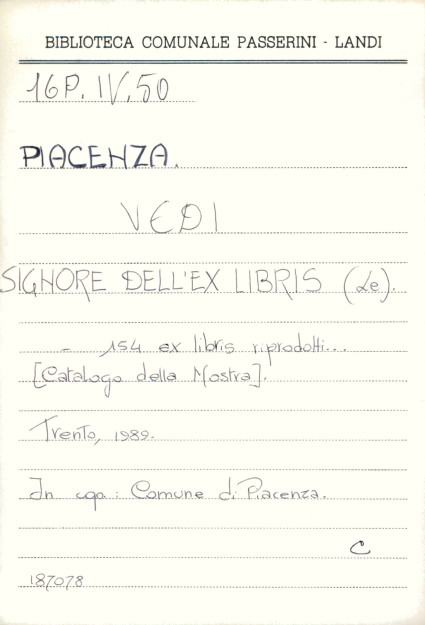 BIBLIOTECA COMUNALE PASSERINI - LANDI
16P. IV. 50
PIACENZA.
VEDI
SIGNORE DELL'EX LIBRIS (Le).
- 154 ex libris riprodotti...
[Catalogo della Mostra].
Trento, 1989.
In cga: Comune di Piacenza.
C
187078